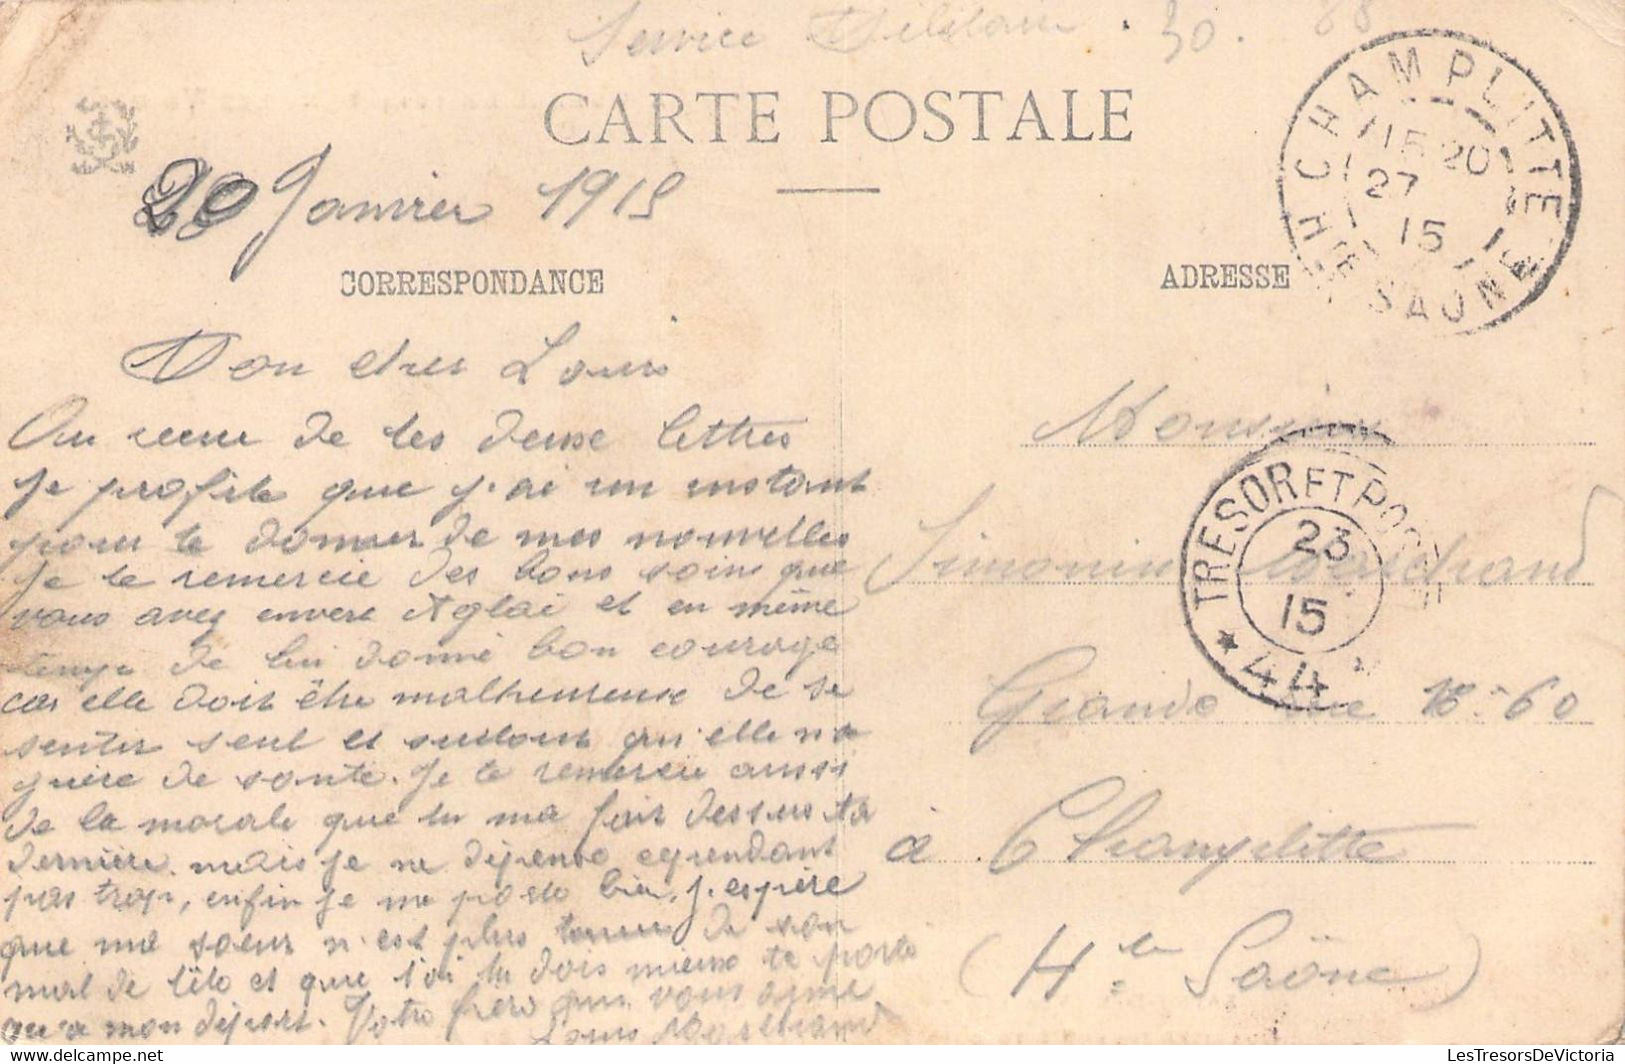 Service Militaire
CARTE POSTALE
20 Janvier 1915
CORRESPONDANCE
ADRESSE
CHAMPLITTE
15 20
27
15
HTE SAÔNE
Mon cher Louis
En reçue de tes deuxe lettres
Je profite que j'ai un instant
pour te donner de mes nouvelles
Je te remercie des bons soins que
vous avez envers Aglaé et en même
temps de lui donné bon courage
car elle doit être malheureuse de se
sentir seul et surtout qu'elle n'a
guère de santé. Je te remercie aussi
de la morale que tu ma fait dessus ta
dernière. mais je ne dépense cependant
pas trop, enfin je me porte bien, j'espère
que ma soeur n'est plus de son
mal de tête et que toi tu dois mieux te porté
qu'a mon départ. Votre frère qui vous aime
Louis Marchand
Monsieur
Simonin Marchand
Grande rue No 60
à Champlitte
(Hte Saône)
TRESOR ET POSTES
23
15
* 44 *
LesTresorsDeVictoria